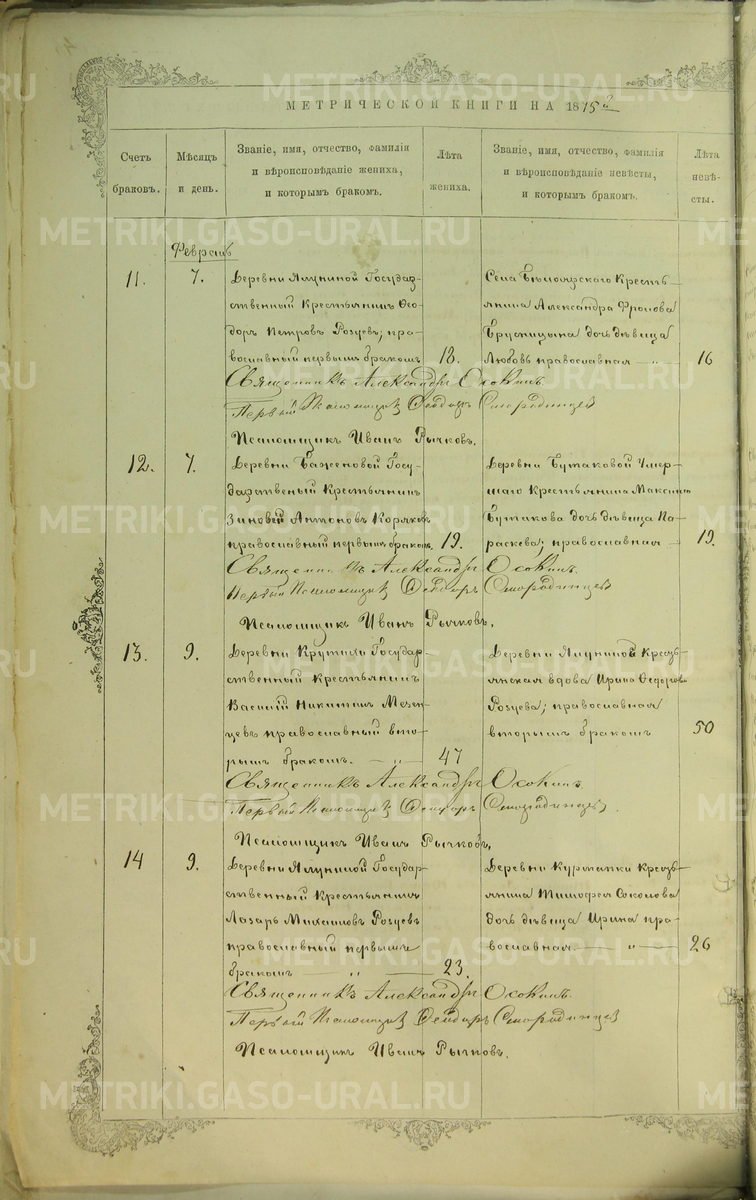 МЕТРИЧЕСКОЙ КНИГИ НА 1875 й
Счетъ браковъ.
Мѣсяцъ и день.
Званіе, имя, отчество, фамилія и вѣроисповѣданіе жениха, и которымъ бракомъ.
Лѣта жениха.
Званіе, имя, отчество, фамилія и вѣроисповѣданіе невѣсты, и которымъ бракомъ.
Лѣта невѣсты.
Февраль
11. 7.
Деревни Ялуниной Государ-
ственный Крестьянинъ Ѳео-
доръ Петровъ пра-
вославный первымъ бракомъ
18.
Села Крестъ-
янина Александра Фролова
Брусницына дочь дѣвица
Любовь православная — „ —
16
Священникъ Александръ
Первый Псаломщикъ Ѳеодоръ Смородинцевъ
Псаломщикъ Иванъ Рычковъ.
12. 7.
Деревни Баженовой Госу-
дарственый Крестьянинъ
Зиновей Антоновъ Коряковъ
православный первымъ бракомъ.
19.
Деревни Бутаковой Умер-
шаго Крестьянина Максима
Бутакова дочь дѣвица Па-
раскева; православная —
19.
Священникъ Александръ
Первый Псаломщикъ Ѳеодоръ Смородинцевъ
Псаломщикъ Иванъ Рычковъ.
13. 9.
Деревни Крутихи Государ-
ственный Крестьянинъ
Василій Никитинъ Мезен-
цевъ православный вто-
рымъ бракомъ. — „ —
47
Деревни Ялуниной Кресть-
янская вдова Ирина Ѳедорова
православная
вторымъ бракомъ
50
Священникъ Александръ
Первый Псаломщикъ Ѳеодоръ Смородинцевъ.
Псаломщикъ Иванъ Рычковъ.
14 9.
Деревни Ялуниной Государ-
ственный Крестьянинъ
Лазарь Михаиловъ
православный первымъ
бракомъ — „ —
23.
Деревни Курманки Кресть-
янина Тимофея Соколова
дочь дѣвица Ирина пра-
вославная. — „ —
26
Священникъ Александръ
Первый Псаломщикъ Ѳеодоръ Смородинцевъ
Псаломщикъ Иванъ Рычковъ.
METRIKI.GASO-URAL.RU